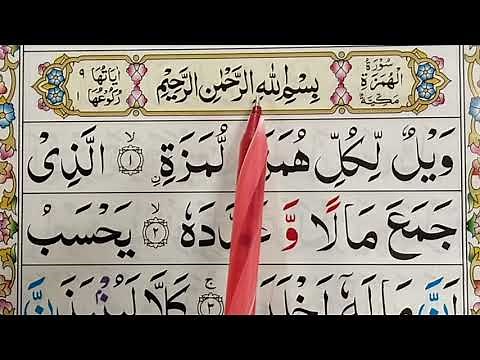 سُوْرَةُ الْهُمَزَةِ مَكِّيَّةٌ
بِسْمِ اللّٰهِ الرَّحْمٰنِ الرَّحِيْمِ
اٰيَاتُهَا ٩ رُكُوْعُهَا ١
وَيْلٌ لِّكُلِّ لُّمَزَةِ ۙ﴿١﴾ الَّذِىْ
جَمَعَ مَالًا وَّ عَدَّدَهٗ ۙ﴿٢﴾ يَحْسَبُ
اَنَّ مَالَهٗۤ ۚ﴿٣﴾ كَلَّا لَيُنْۢبَذَنَّ